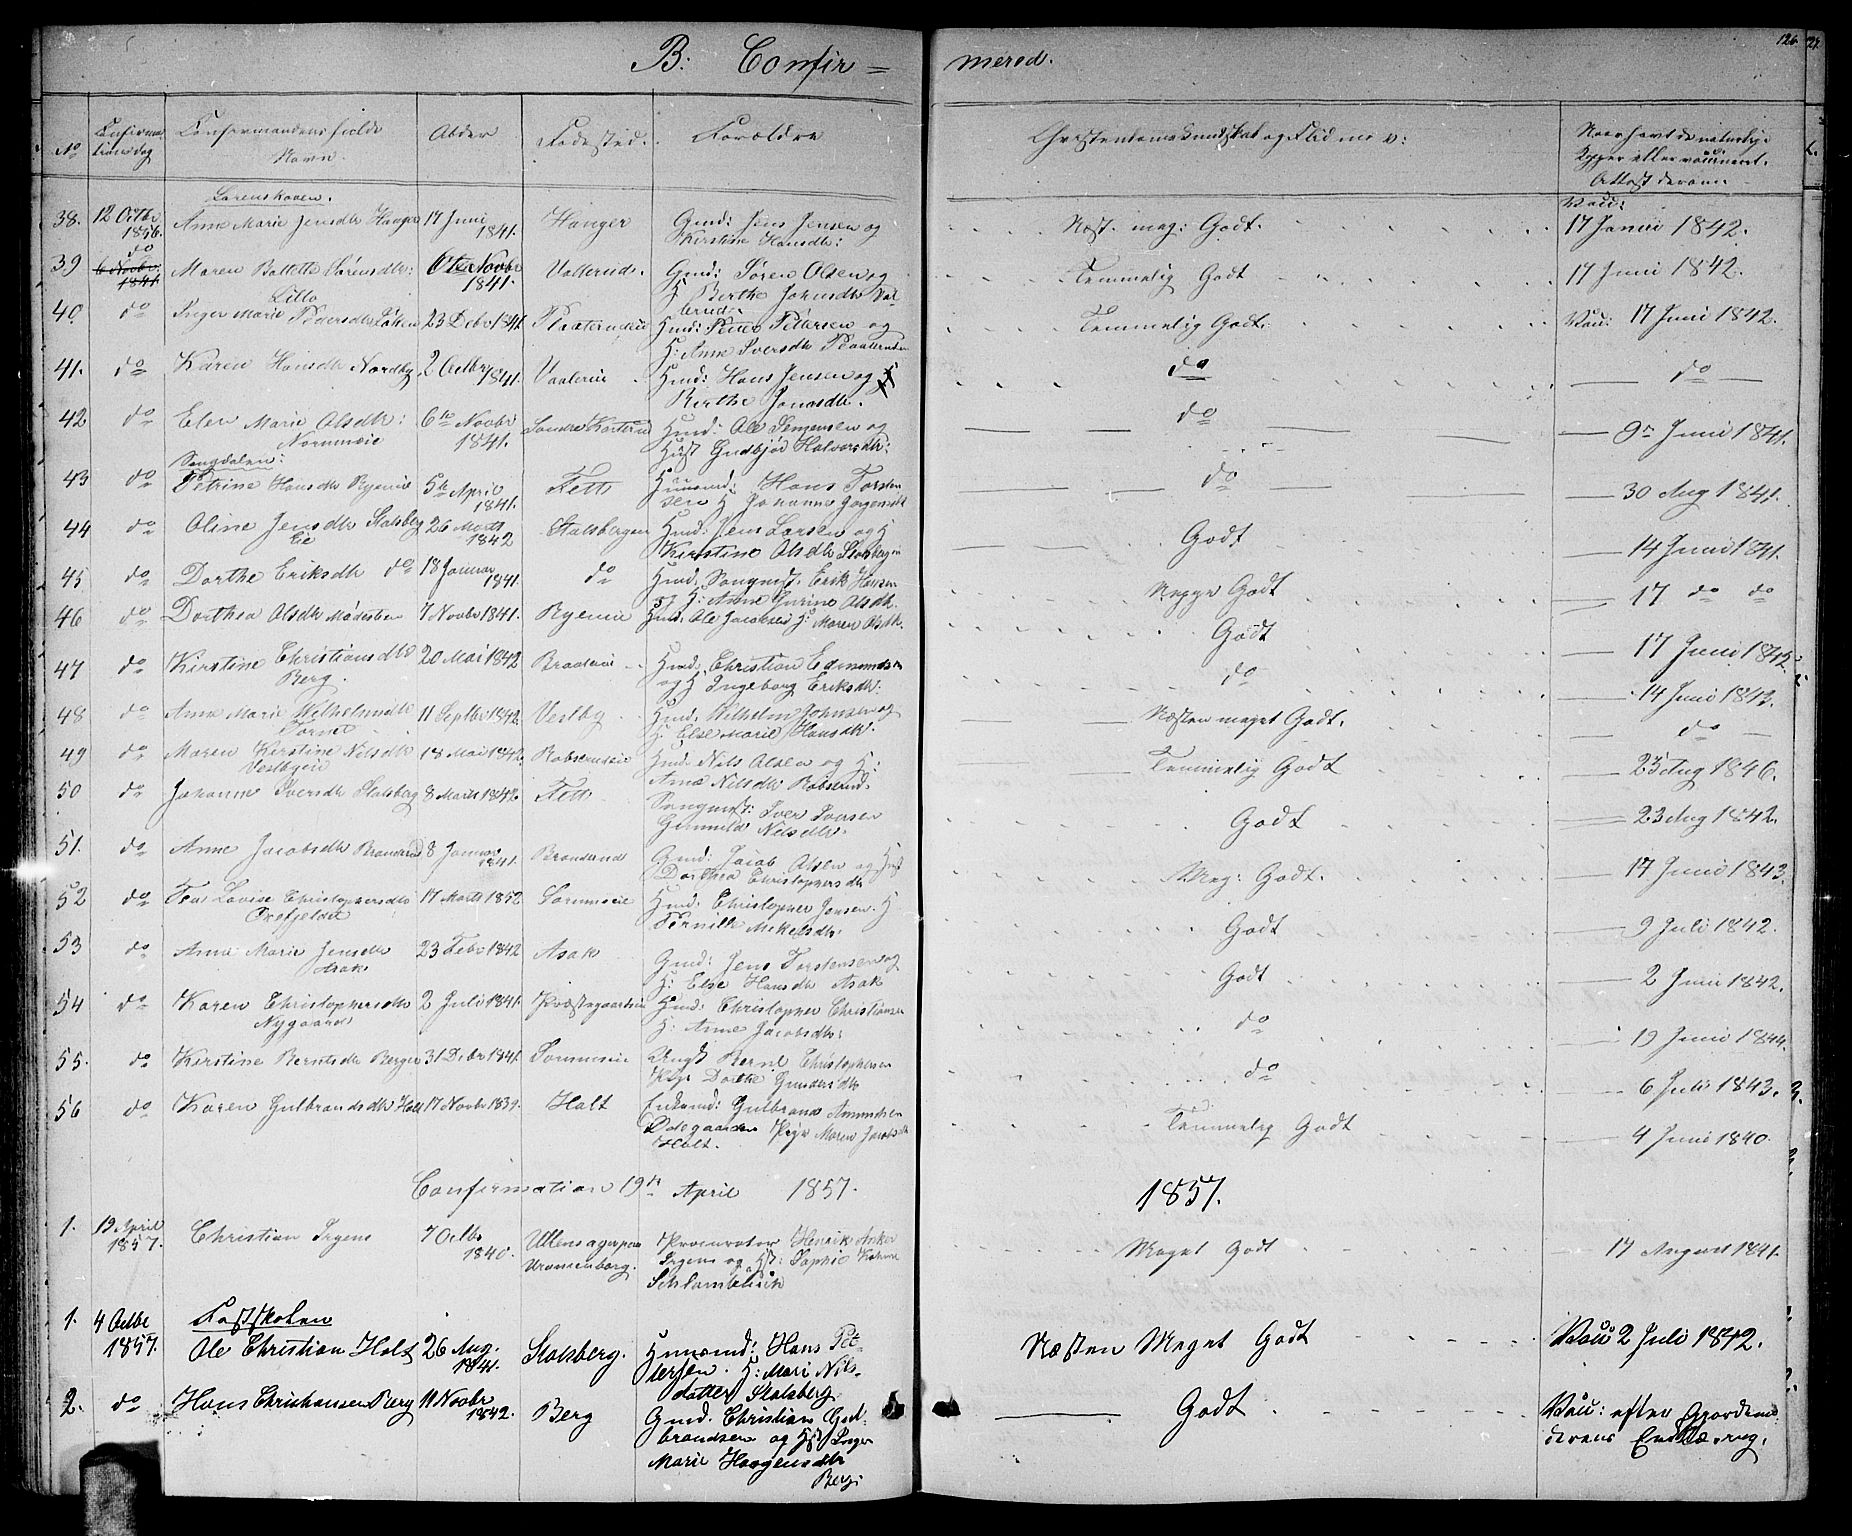 B: Confir = merede.
126.
No Confirmationsdag Confirmandens fulde Navn. Alder Fødested. Forældre Christendomskundskab og Flid m v: Naar havt de naturlige Kopper eller vaccineret. Attest derom
Lørenskoven.
38. 12 Octbr 1856. Anne Marie Jensdtr Hanger 17 Juni 1841. Hanger Gmd: Jens Jensen og Kirstine Hansdtr: Næst. meg: Godt. Vacc: 17 Junii 1842.
39 do Maren Bollette Sørensdtr: 6te Novbr 1841. Vallerud. Gmd: Søren Olsen og H Berthe Johnsdtr Valerud. Temmelig Godt 17 Juni 1842.
40. do Inger Marie Pedersdtr Løken Lillo 23 Debr 1841. Plaaterudeie Hmd: Petter Petersen og H: Anne Iversdtr Plaaterudeie Temmelig Godt. Vac: 17 Juni 1842.
41. do Karen Hansdtr Nordby 2 Octbr 1841. Vaalereie Hmd: Hans Jensen og Berthe Jonasdtr. do do
42 do Elen Marie Olsdtr: Normoeie 6te Novbr 1841. Søndre Korterud Hmd: Ole Jensen og Hust Gudbjør Halvorsdtr: do 9 Juni 1841.
Sougdalen:
43 do Petrine Hansdtr Ryeneie 5te April 1841. Fett Huusmd: Hans Torstensen H Johanne Jørgensdtr do 30 Aug 1841.
44 do Oline Jensdtr Stalsberg Eie 26 Marts 1842 Stalsbergeie Hmd: Jens Larsen og H Kirstine Olsdtr Stalsbergeie Godt 14 Juni 1841.
45 do Dorthe Eriksdtr do 18 Januar 1841. do Hmd Erik Hansen og H: Anne Gurine Olsdtr. Neppe Godt 17 do do
46 do Dorthea Olsdtr 7 Novbr 1841. Ryeneie Hmd. Ole Jacobsen H: Maren Olsdtr. Godt 17 Juni 1842.
47 do Kirstine Christiansdtr Berg. 20 Mai 1842 Braateeie Hmd. Christian Edmundsen og H Ingeborg Eriksdtr. do 14 Juni 1843.
48 do Anne Marie Wilhelmsdtr Tornet 11 Septbr 1842. Vestby Hmd. Wilhelm Johnsen og H. Else Marie Hansdtr. Næsten meget Godt. do
49 do Maren Kirstine Nilsdtr Vestbyeie 18 Mai 1842. Robsrudeie Hmd Nils Olsen og H: Anne Nilsdtr Robsrud. Temmelig Godt 25 Aug 1846.
50 do Johanne Iversdtr Stalsberg 8 Marts 1842. Fett Iver Iversen Gunnild Nilsdtr. Godt 23 Aug 1842.
51. do Anne Jacobsdtr Branderud 8 Januar 1841. Branderud Gmd: Jacob Olsen og Hust Dorthea Christophersdtr Meg: Godt. 17 Juni 1843.
52 do Lovise Christophersdtr Oxefjeldet 17 Marts 1852. Sørumseie Hmd: Christopher Jensen. H Pernille Mikelsdtr. Godt 9 Juli 1842.
53 do Anne Marie Jensdtr Asak 23 Febr 1842 Asak Gmd: Jens Torstensen og H: Else Hansdtr Asak Godt 2 Juni 1842.
54 do Karen Christophersdtr Nygaard 2 Juli 1841. Præstegaardseie Hmd: Christopher Christiansen H: Anne Jacobsdtr: do 19 Juni 1844.
55. do Kirstine Berntsdtr Berger 31 Debr 1841. Sørumseie Ungk Bernt Christophersen Pige Dorthe Gundersdtr do 6 Juli 1843.
56 do Karen Gulbrandsdtr Holt 17 Novbr 1839. Holt Enkemd: Gulbrand Amundsen Ødegaarden Pige Maren Jacobsdtr Holt. Temmelig Godt 4 Juni 1840.
Confirmation 19de April 1857. 1857.
1. 19 April 1857. Christian Irgens 7 Octbr 1840. Ullensager Uranienborg. Procurator Henrik Anker Irgens og Hst: Sophie Schlambusch Meget Godt 17 August 1841.
1. 4 Octbr 1857. Fastskolen Ole Christian Holt 26 Aug. 1841. Stalsberg. Huusmd: Hans Petersen. H: Mari Nilsdatter Stalsberg Næsten Meget Godt Vacc 2 Juli 1842.
2. do Hans Christiansen Berg 11 Novbr 1842. Berg Gmd. Christian Gulbrandsen og Hst Inger Marie Haagensdtr Berg: Godt Vacc: efter Gjordemoderens Erklæring.